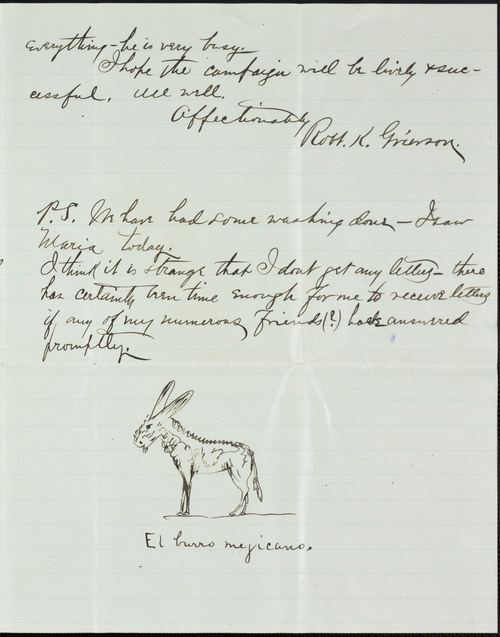 everything – he is very busy.
I hope the campaign will be lively & suc-
cessful. All well.
Affectionately
Robt. K. Grierson.
P.S. We have had some washing done – I saw
Maria today.
I think it is strange that I dont get any letters – there
has certainly been time enough for me to receive letters
if any of my numerous friends (?) had answered
promptly.
El burro mejicano.